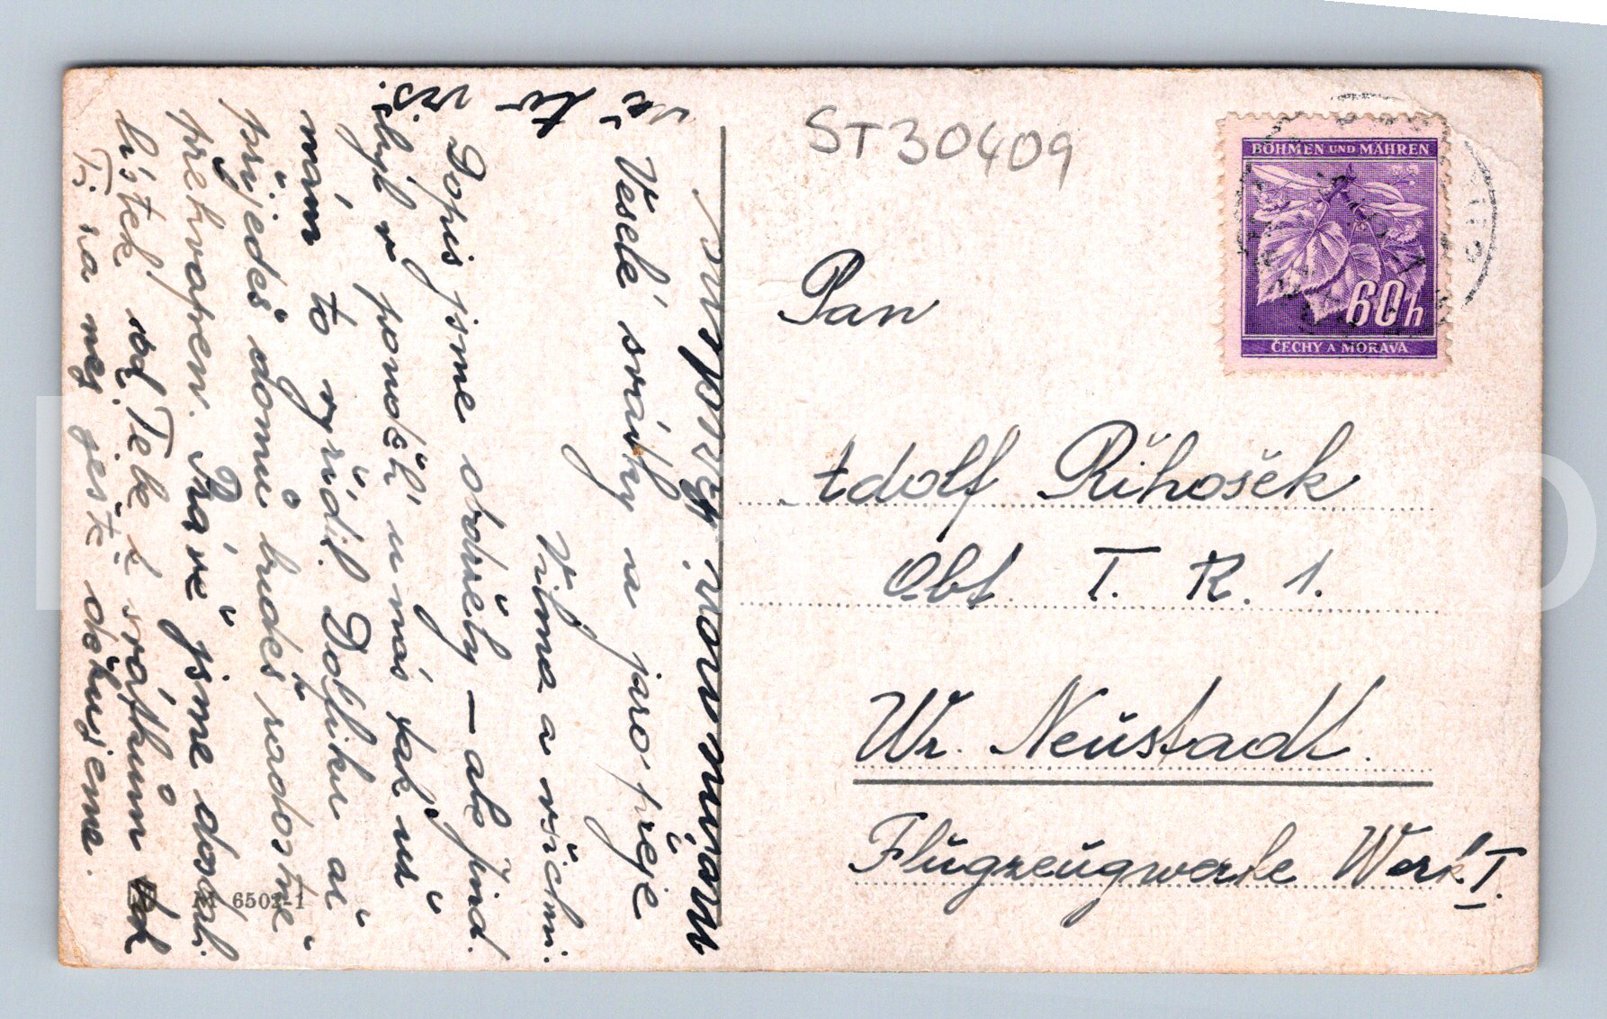 ST30409
BÖHMEN UND MÄHREN
60h
ČECHY A MORAVA
Pan
Adolf Řihošek
Abt. T. R. 1.
Wr. Neŭstadt.
Flŭgzeŭgwerke Werk I.
Veselé svátky a jaro přeje
Vilma a všichni.
Dopis jsme obdržely – ale Jind.
byl v pondělí u nás tak už
mám to vyřídil Dolfiku až
přijedeš domů budeš radostně
překvapen. Právě jsme dostali
lístek od Tebe k svátkům
Ti na něj ještě děkujeme.
M 6502-1